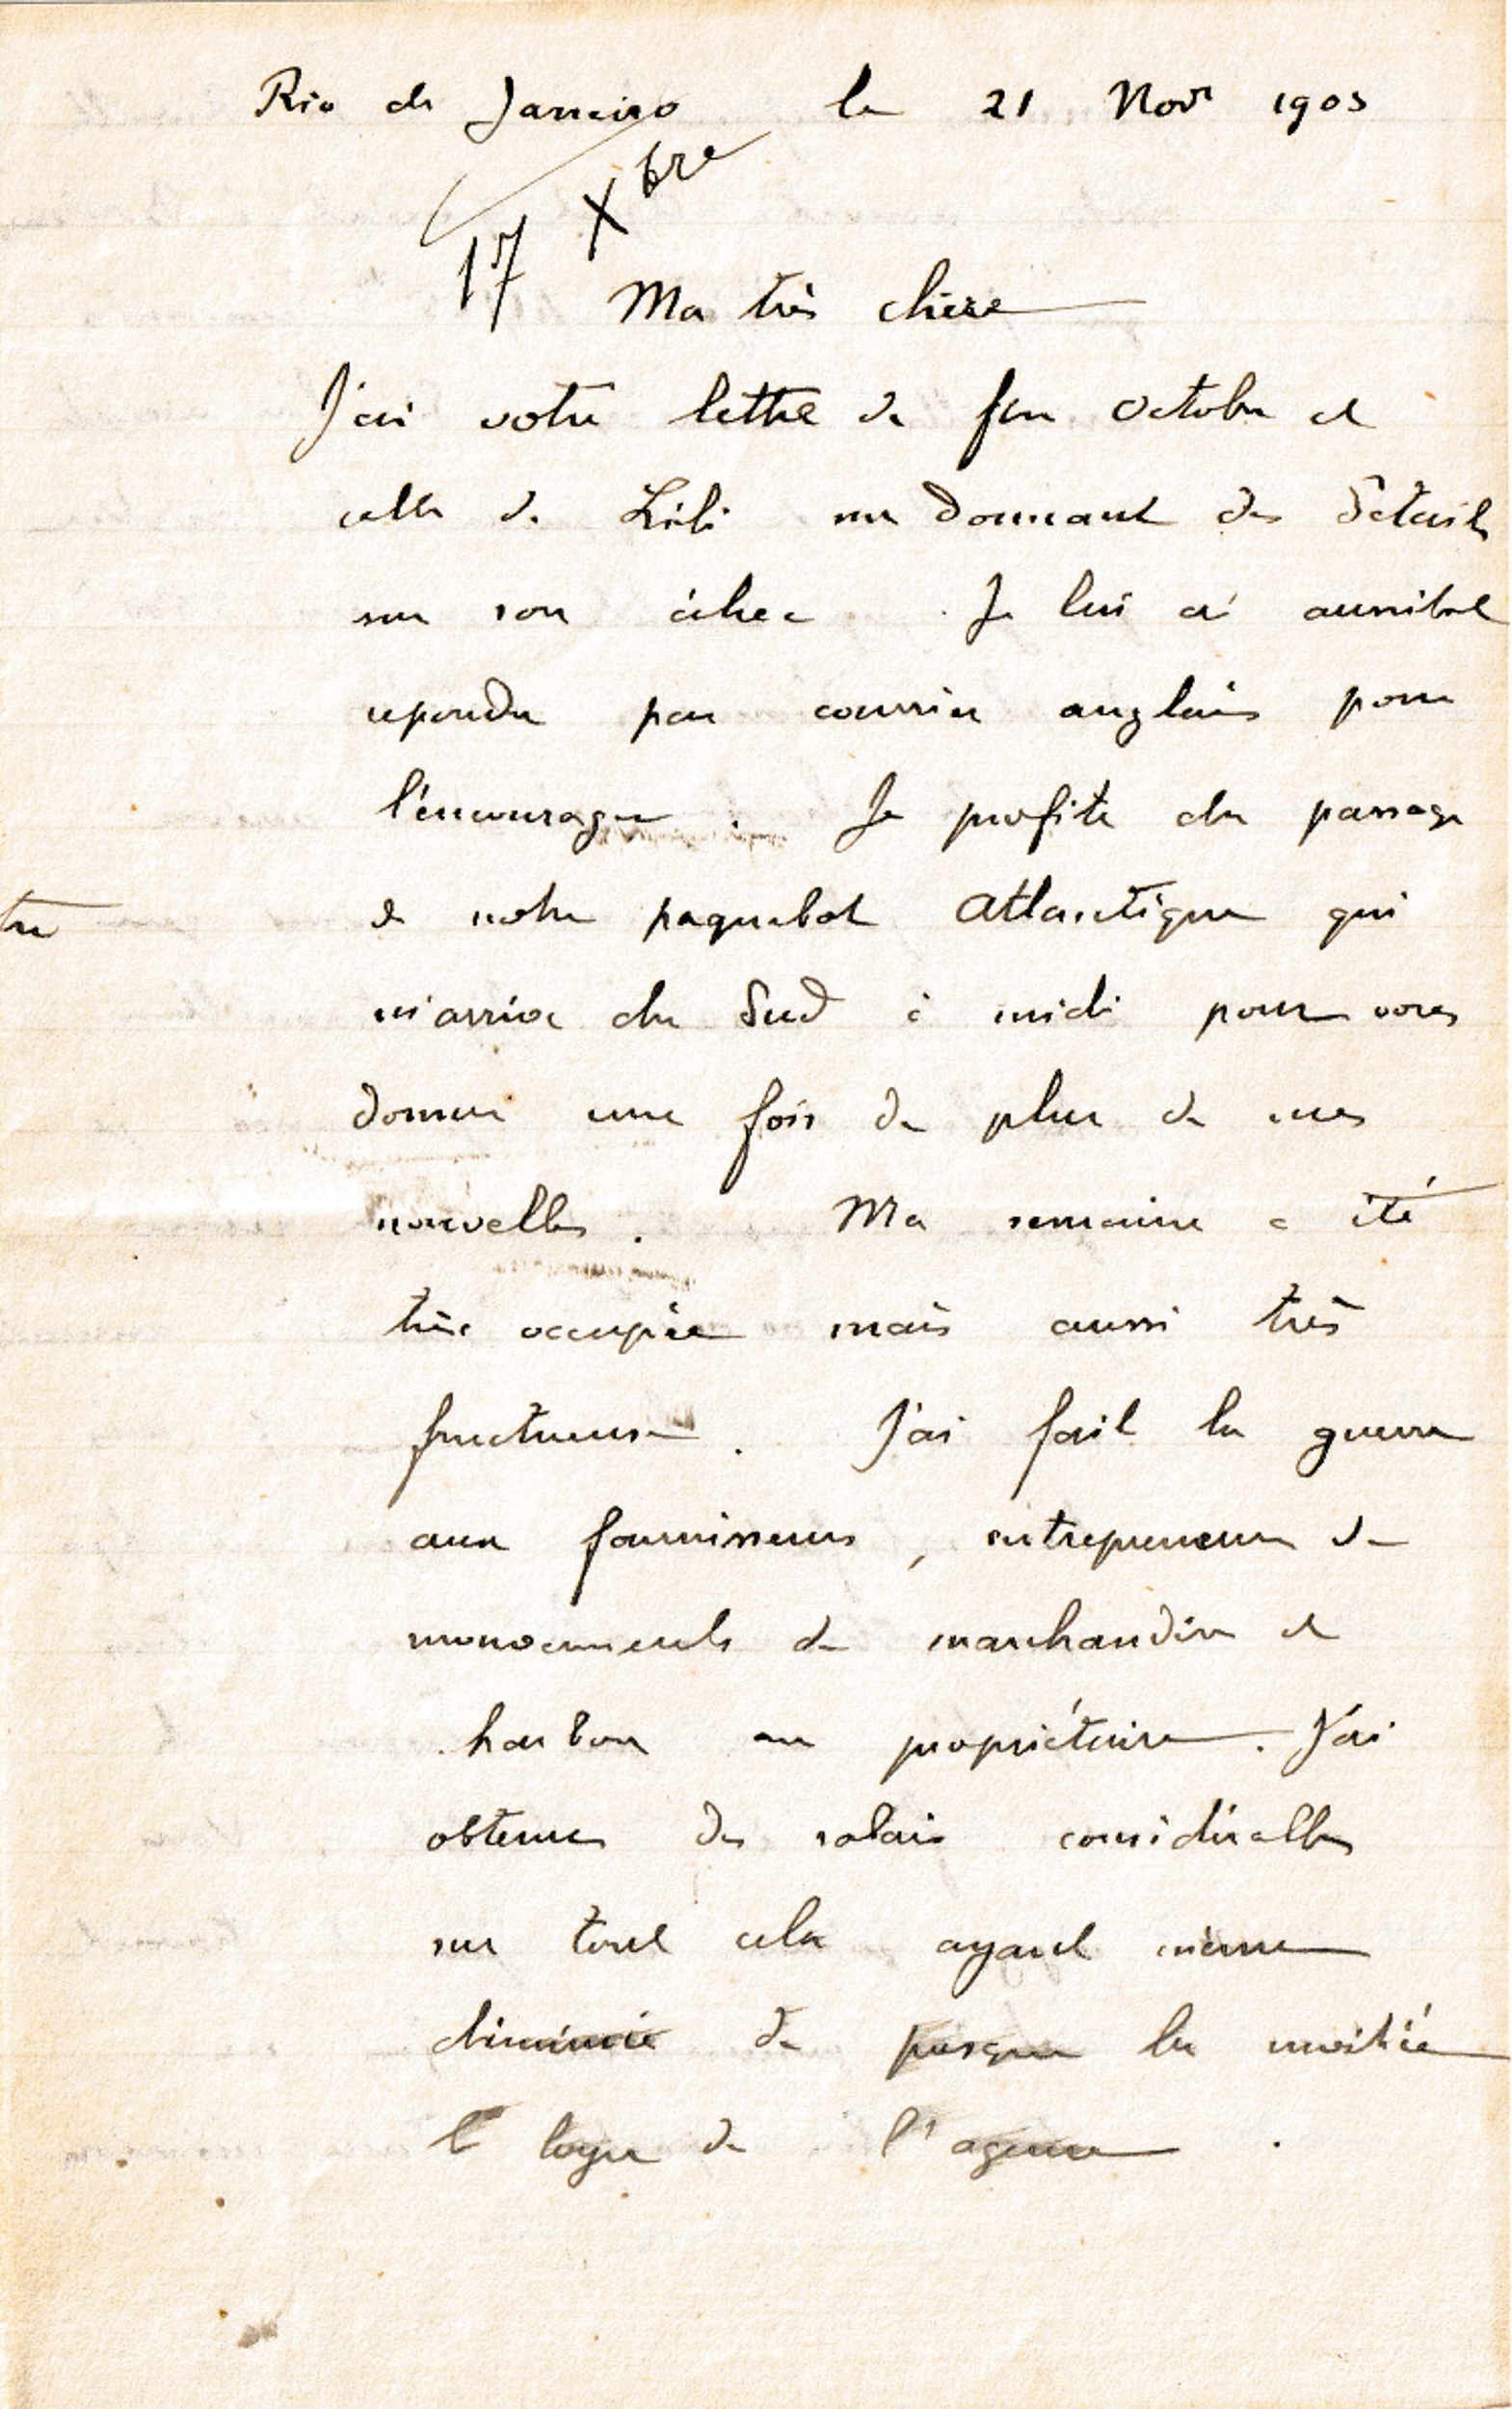 Rio de Janeiro le 21 Novr 1905
17 Xbre
Ma très chère
J'ai votre lettre de fin octobre et
celle de Lili me donnant des détails
sur son échec. Je lui ai aussitot
repondu par courrier anglais pour
l'encourager. Je profite du passage
de notre paquebot Atlantique qui
m'arrive du Sud à midi pour vous
donner une fois de plus de mes
nouvelles. Ma semaine a été
très occupée mais aussi très
fructueuse. J'ai fait la guerre
aux fournisseurs, entrepreneurs de
mouvements de marchandise et
charbon au propriétaire. J'ai
obtenu des rabais considérables
sur tout cela ayant même
diminué de presque la moitiée
le loyer de l'agence.